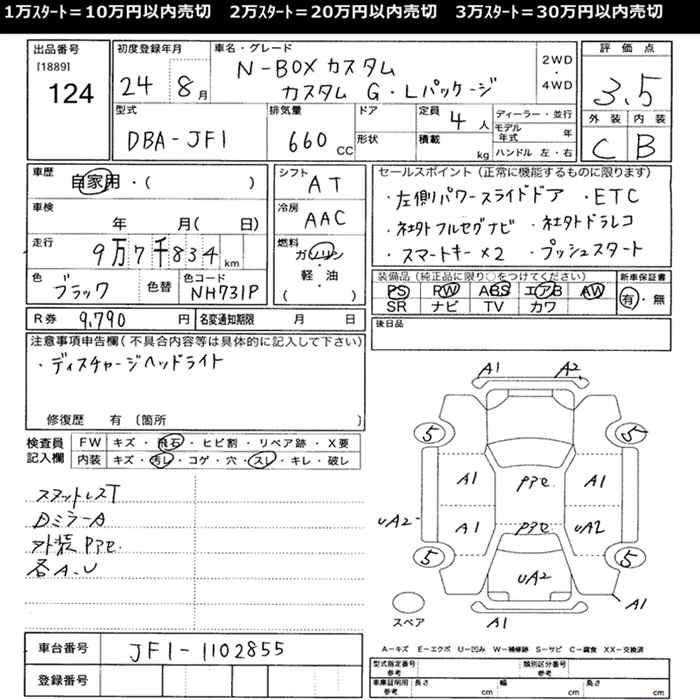 1万ｽﾀｰﾄ＝10万円以内売切　2万ｽﾀｰﾄ＝20万円以内売切　3万ｽﾀｰﾄ＝30万円以内売切
出品番号 [1889] 124
初度登録年月 24 8月
車名・グレード N-BOXカスタム カスタム G・Lパッケージ 2WD・4WD
評価点 3.5
外装 C 内装 B
型式 DBA-JF1
排気量 660 CC
ドア 形状
定員 4人 積載 kg
ディーラー・並行
モデル年式 年
ハンドル 左・右
車歴 自家用・( )
車検 年 月( 日)
走行 9万7千834km
色 ブラック 色替 色コード NH731P
シフト AT
冷房 AAC
燃料 ガソリン・軽・油 ( )
セールスポイント（正常に機能するものに限ります）
・左側パワースライドドア ・ETC
・社外フルセグナビ ・社外ドラレコ
・スマートキー×2 ・プッシュスタート
装備品（純正品に限り○をつけてください）
PS PW ABS エアB AW
SR ナビ TV カワ
新車保証書 有・無
R券 9,790円 名変通知期限 月 日
後日品
注意事項申告欄（不具合内容等は具体的に記入して下さい）
・ディスチャージヘッドライト
修復歴 有〔箇所
検査員記入欄
FW キズ・飛石・ヒビ割・リペア跡・X要
内装 キズ・汚レ・コゲ・穴・スレ・キレ・破レ
DミラーA
外装 ppe.
各A.U
A1 A2
5 5
A1 ppe A1
uA2 A1 ppe uA2
5 5
uA2
スペア A1 A1
車台番号 JF1-1102855
登録番号
A－キズ E－エクボ U－凹み W－補修跡 S－サビ C－腐食 XX－交換済
型式指定番号 類別区分番号
車庫証明用参考 長さ cm 幅 cm 高さ cm